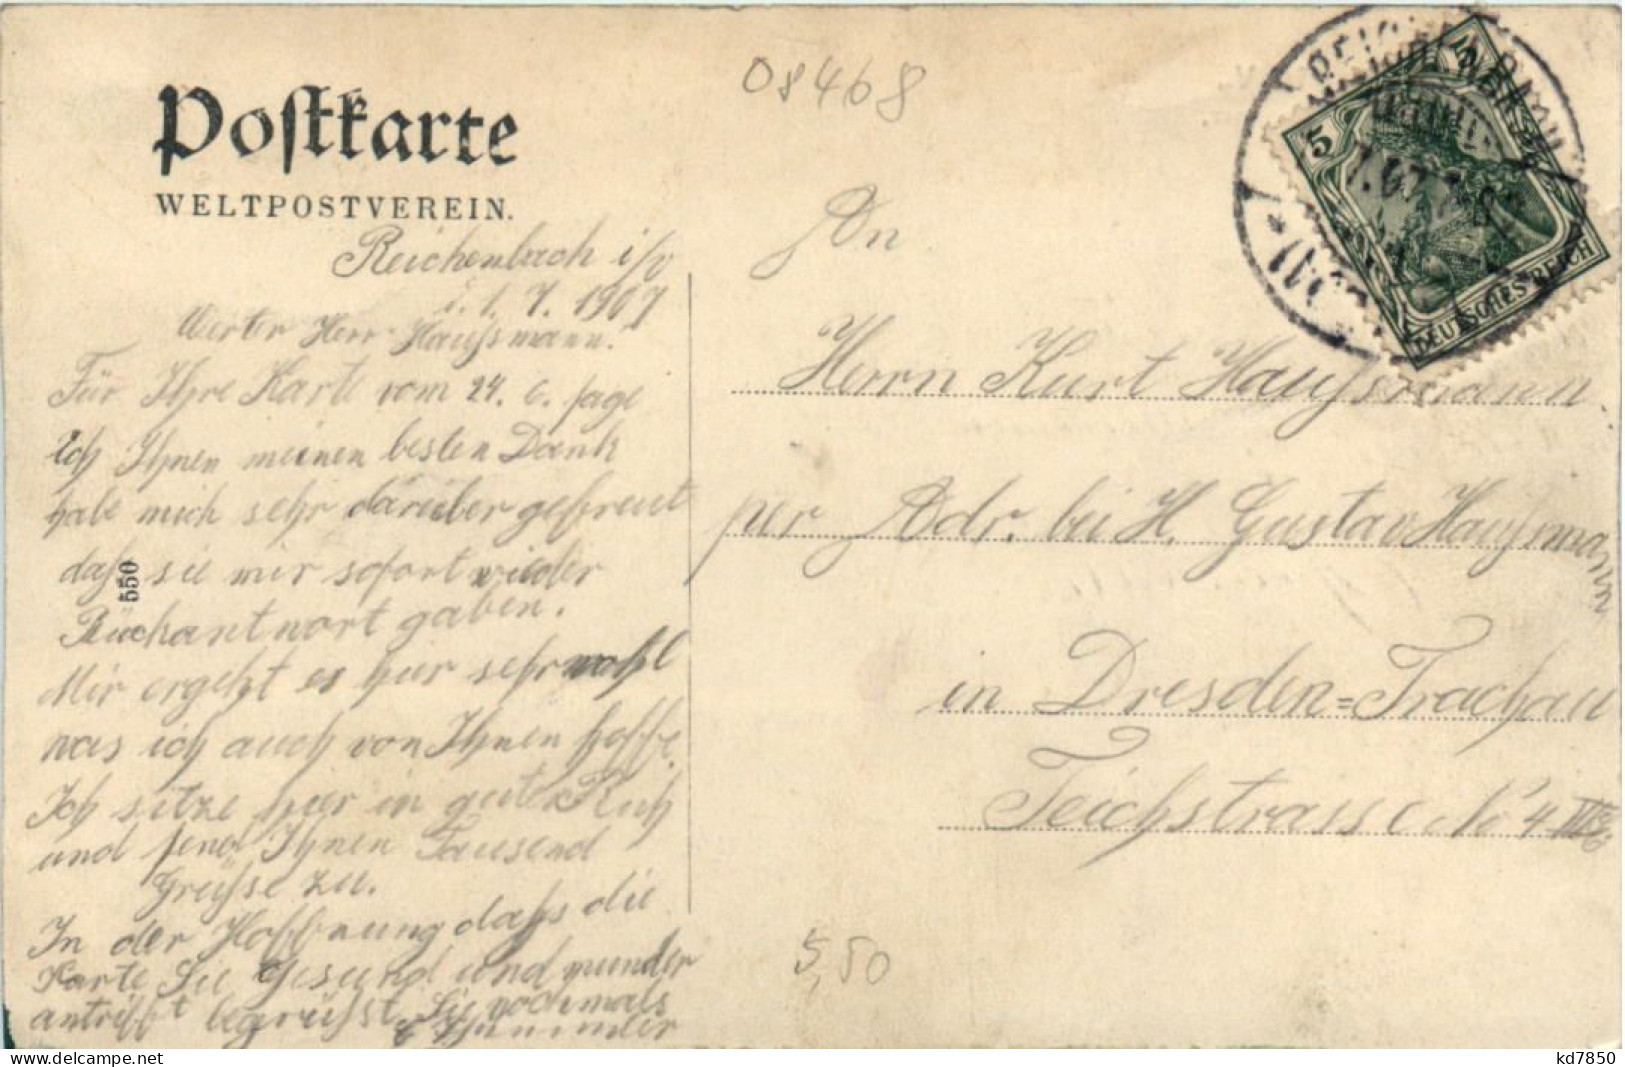 08468
Postkarte
WELTPOSTVEREIN.
Reichenbach i/v
d. 1. 7. 1907
Werter Herr Haußmann.
Für Ihre Karte vom 24. 6. sage
Ich Ihnen meinen besten Dank
habe mich sehr darüber gefreut
daß sie mir sofort wieder
Rückantwort gaben.
Mir ergeht es hier sehr wohl
was ich auch von Ihnen hoffe.
Ich sitze hier in guter Ruh
und send Ihnen Tausend
Grüße zu.
In der Hoffnung daß die
Karte Sie Gesund und munder
antrifft begrüßt Sie nochmals
550
An
Herrn Kurt Haußmann.
per Adr. bei H. Gustav Haußmann
in Dresden=Trachau
Teichstrasse No 4
5,50
5
DEUTSCHES REICH
kd7850